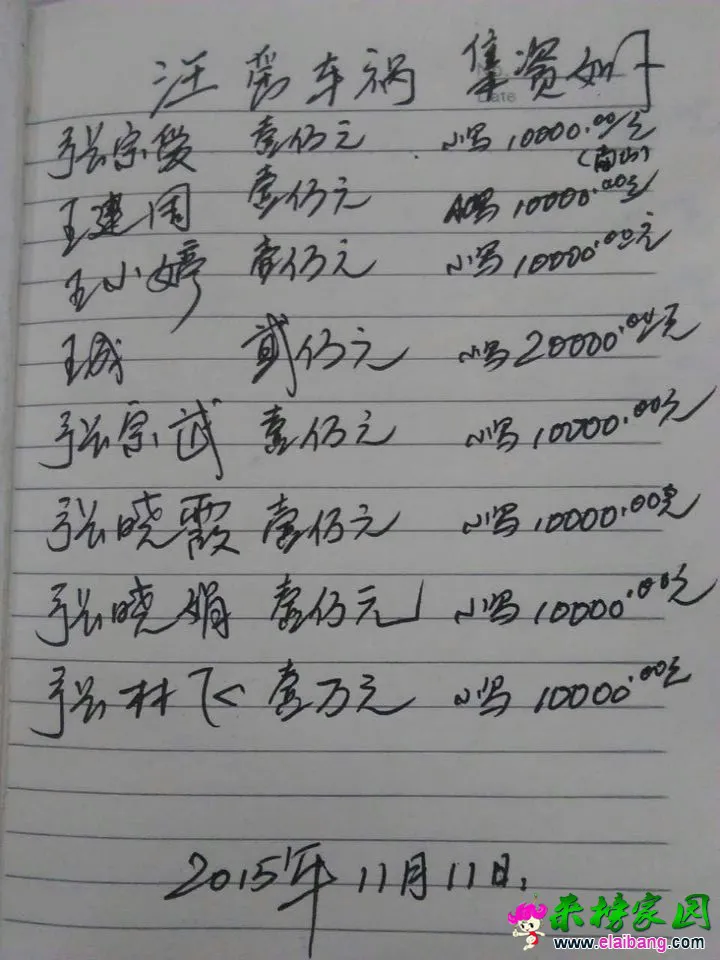 汪 车祸 集资如下
No.
Date
张宗爱 壹仟元 小写10000.00元
(南山)
王建国 壹仟元 小写10000.00元
王小婷 壹仟元 小写10000.00元
王成 贰仟元 小写20000.00元
张宗武 壹仟元 小写10000.00元
张晓霞 壹仟元 小写10000.00元
张晓娟 壹仟元 小写10000.00元
张林飞 壹万元 小写10000.00元
2015年11月11日.
来榜家园
www.elaibang.com